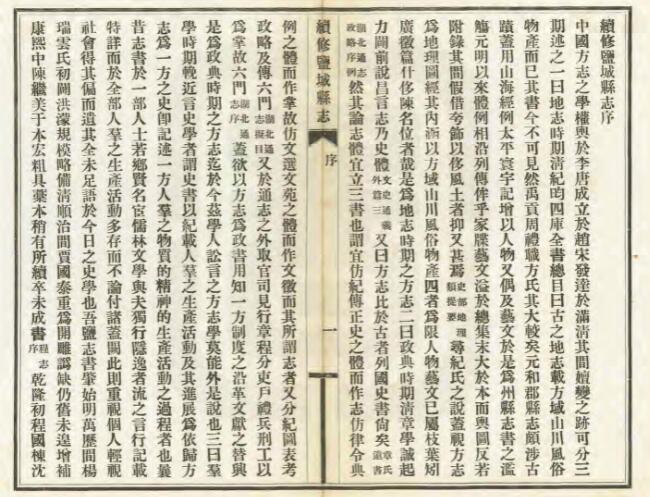 續修鹽城縣志序
中國方志之學權輿於李唐成立於趙宋發達於滿清其間嬗變之跡可分三
期述之一曰地志時期清紀昀四庫全書總目曰古之地志載方域山川風俗
物產而已其書今不可見然禹貢周禮職方氏其大較矣元和郡縣志頗涉古
蹟蓋用山海經例太平寰宇記增以人物又偶及藝文於是爲州縣志書之濫
觴元明以來體例相沿列傳侔乎家牒藝文溢於總集末大於本而輿圖反若
附錄其間假借夸飾以侈風土者抑又甚焉史部地理類提要尋紀氏之說蓋視方志
爲地理圖經其內涵以方域山川風俗物產四者爲限人物藝文已屬枝葉矧
廣徵篇什侈陳名位者哉是爲地志時期之方志二曰政典時期清章學誠起
力闢前說昌言志乃史體文史通義外篇三又曰方志比於古者列國史書尙矣章氏遺書
湖北通志政略序例然其論志體宜立三書也謂宜仿紀傳正史之體而作志仿律令典
續修鹽城縣志 序 一
例之體而作掌故仿文選文苑之體而作文徵而其所謂志者又分紀圖表考
政略及傳六門湖北通志擬目又於通志之外取官司見行章程分吏戶禮兵刑工以
爲掌故六門湖北通志序蓋欲以方志爲政書用知一方制度之沿革文獻之替興
是爲政典時期之方志迄於今茲學人訟言之方志學莫能外是說也三曰羣
學時期輓近言史學者謂史書以紀載人羣之生產活動及其進展爲依歸方
志爲一方之史卽記述一方人羣之物質的精神的生產活動之過程者也曩
昔志書於一部人士若鄉賢名宦儒林文學與夫獨行隱逸者流之言行記載
特詳而於全部人羣之生產活動多存而不論付諸蓋闕此則重視個人輕視
社會得其偏而遺其全未足語於今日之史學也吾鹽志書肇始明萬歷間楊
瑞雲氏初闢洪濛規模略備清順治間賈國泰重爲開雕譌缺仍舊未遑增補
康熙中陳繼美于本宏粗具藁本稍有所續卒未成書程志序乾隆初程國棟沈